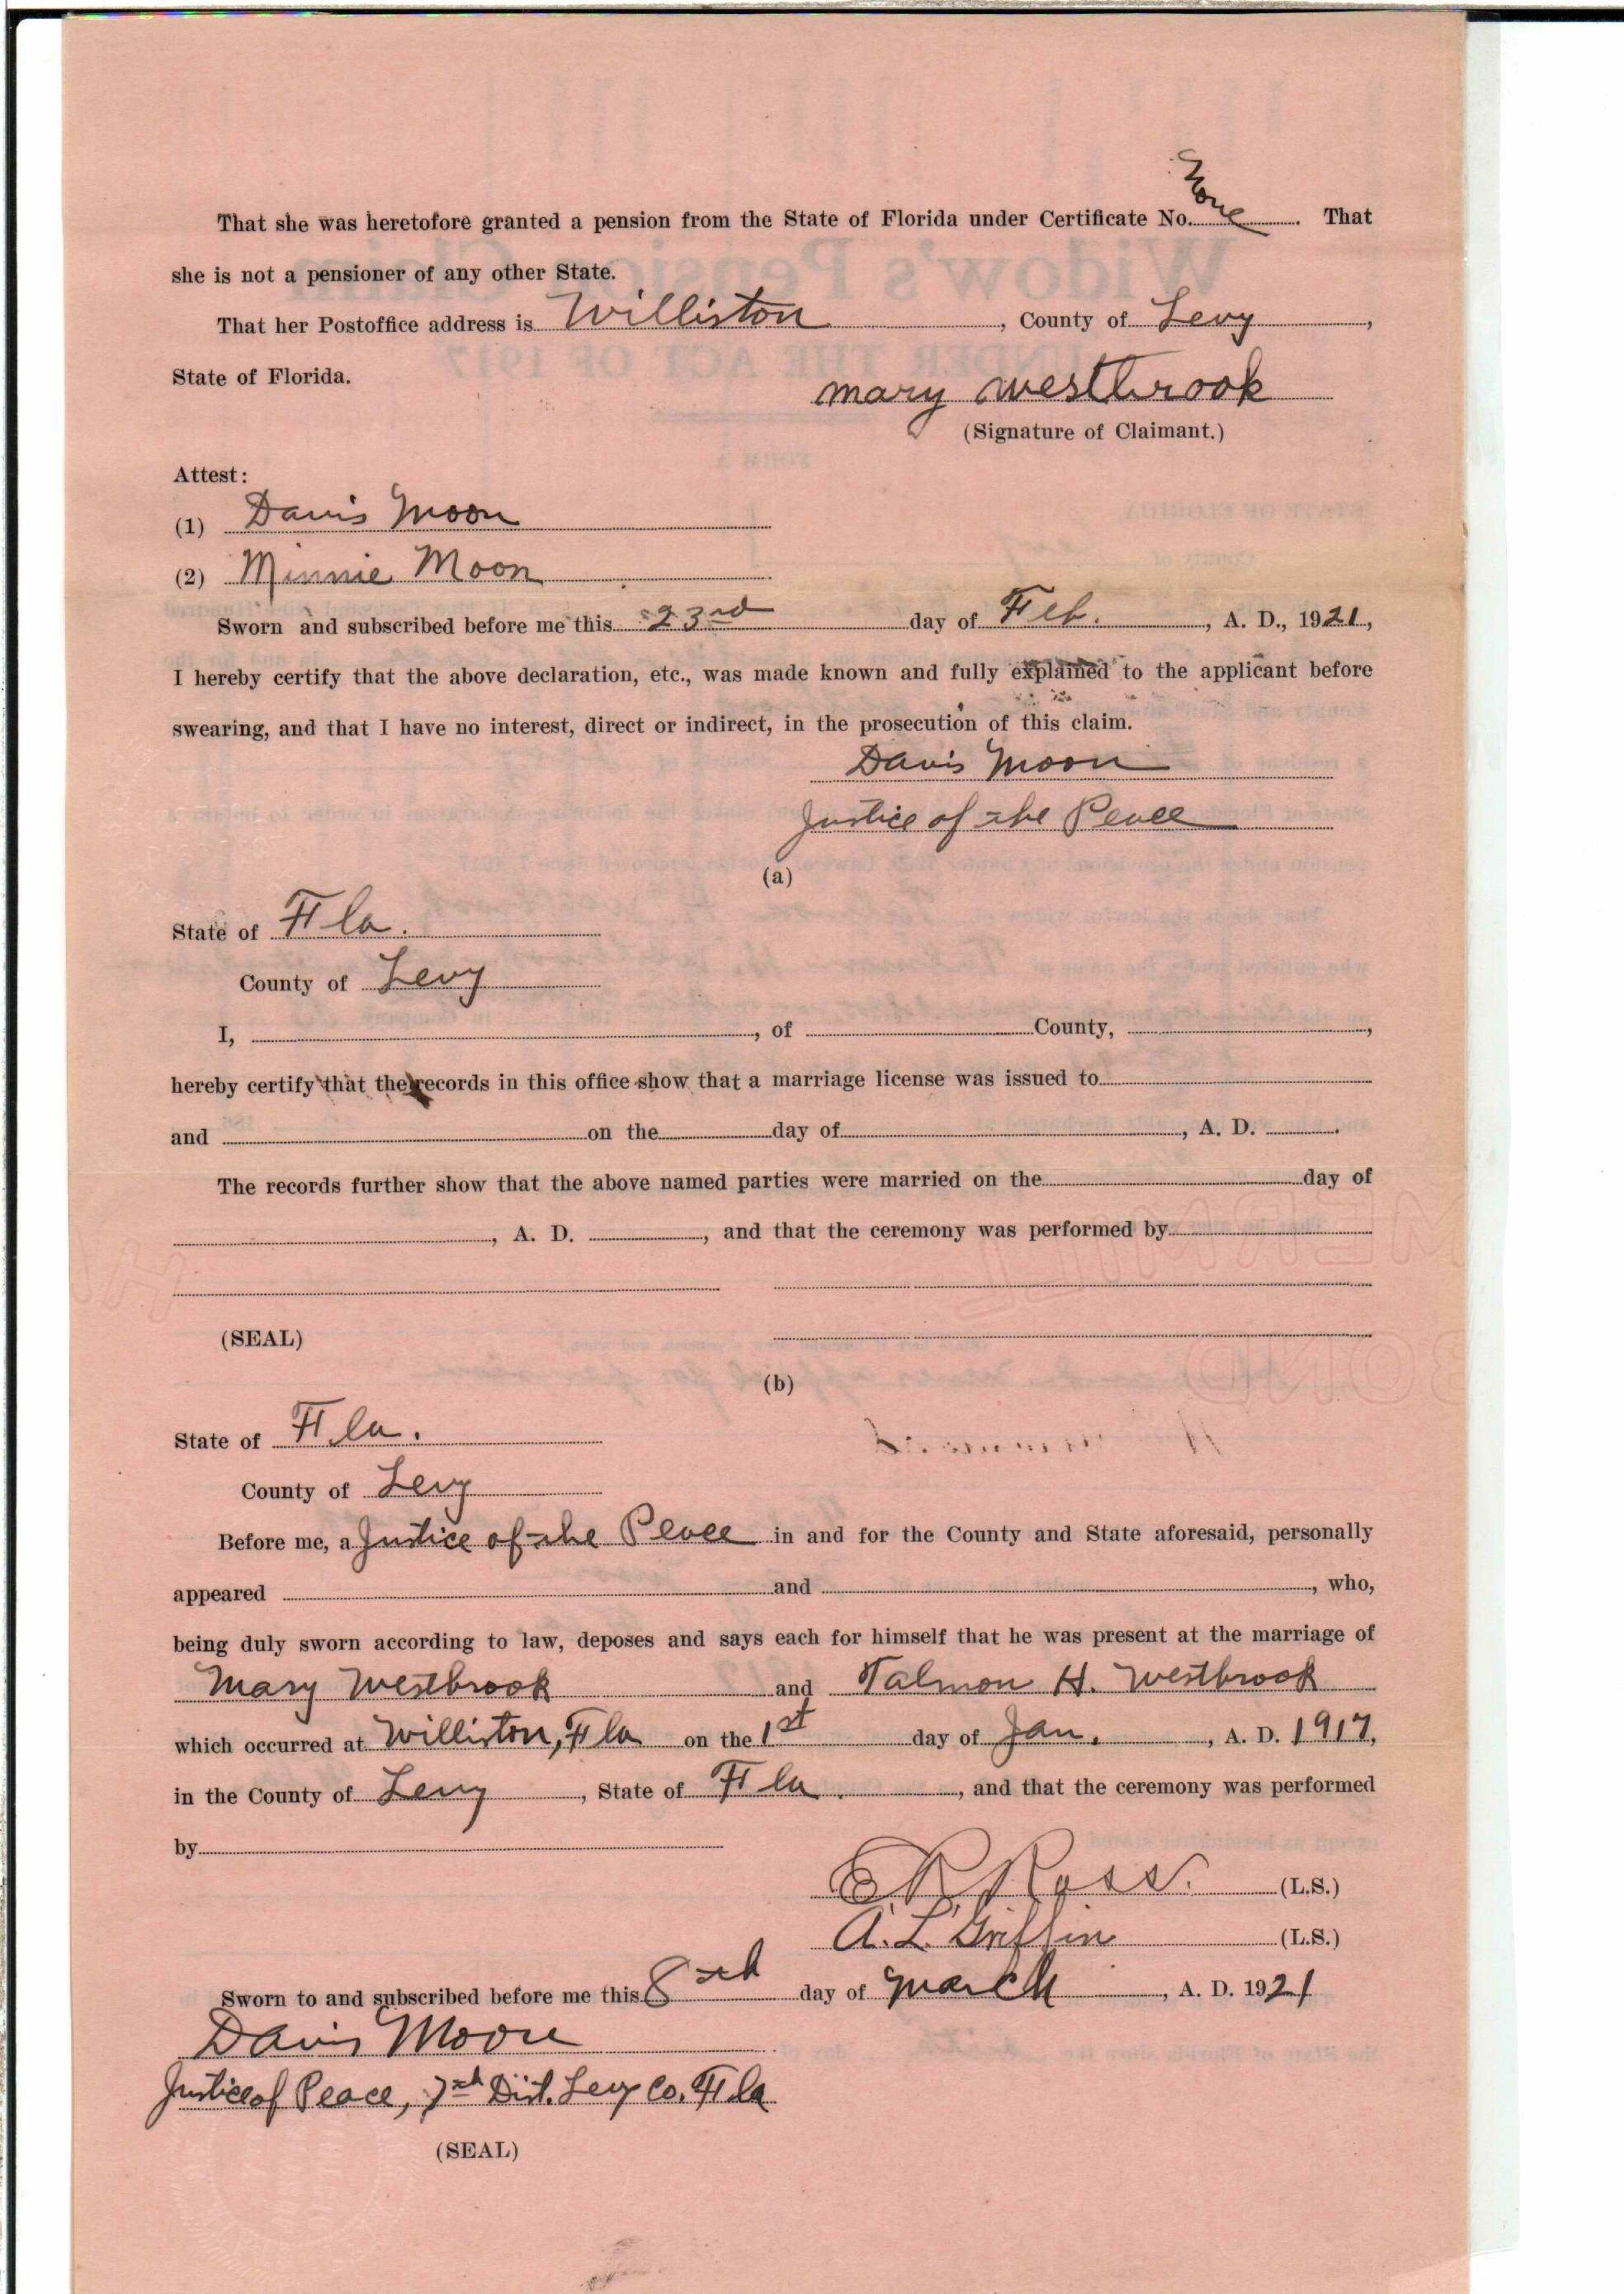 That she was heretofore granted a pension from the State of Florida under Certificate No. None. That
she is not a pensioner of any other State.
That her Postoffice address is Williston, County of Levy,
State of Florida.
mary westbrook
(Signature of Claimant.)
Attest:
(1) Davis Moon
(2) Minnie Moon
Sworn and subscribed before me this 23rd day of Feb., A. D., 1921,
I hereby certify that the above declaration, etc., was made known and fully explained to the applicant before
swearing, and that I have no interest, direct or indirect, in the prosecution of this claim.
Davis Moon
Justice of the Peace
(a)
State of Fla.
County of Levy
I, , of County, ,
hereby certify that the records in this office show that a marriage license was issued to
and on the day of , A. D. .
The records further show that the above named parties were married on the day of
, A. D. , and that the ceremony was performed by
(SEAL)
(b)
State of Fla.
County of Levy
Before me, a Justice of the Peace in and for the County and State aforesaid, personally
appeared and , who,
being duly sworn according to law, deposes and says each for himself that he was present at the marriage of
Mary Westbrook and Talmon H. Westbrook
which occurred at Williston, Fla on the 1st day of Jan., A. D. 1917,
in the County of Levy, State of Fla., and that the ceremony was performed
by
E R Ross. (L.S.)
A. L. Griffin (L.S.)
Sworn to and subscribed before me this 8th day of March, A. D. 1921
Davis Moon
Justice of Peace, 7th Dist. Levy Co. Fla
(SEAL)